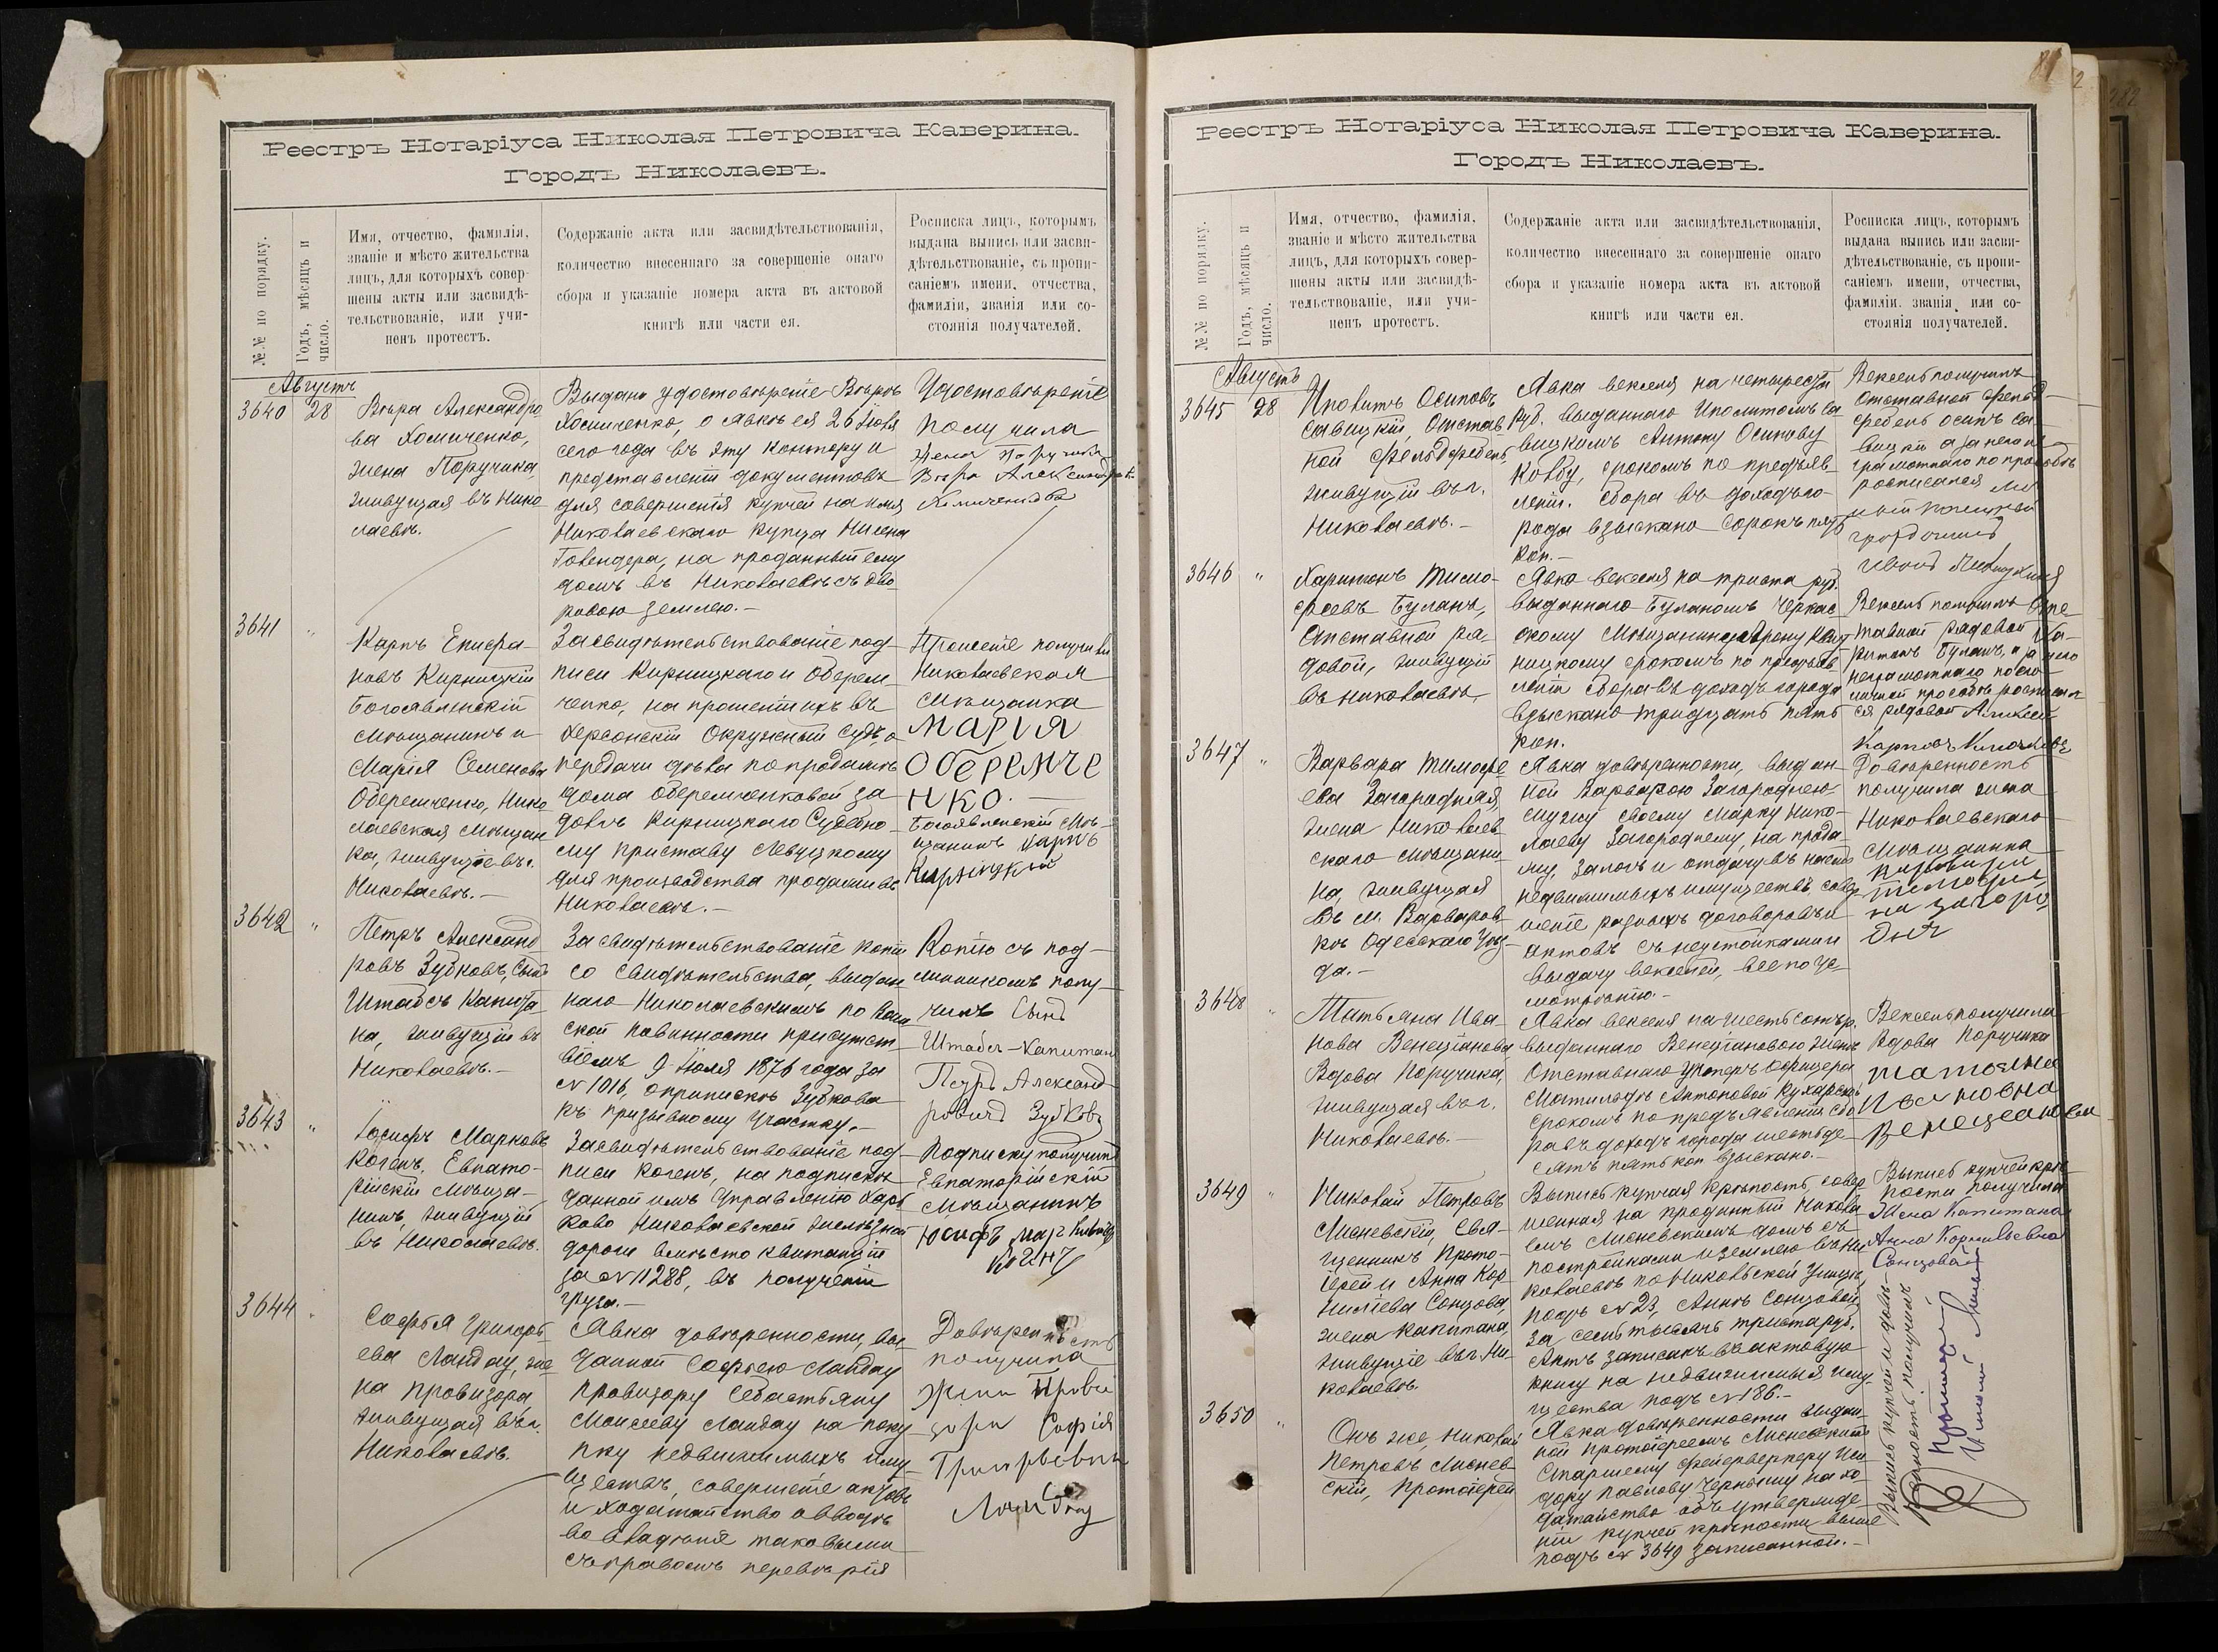 Реестръ Нотаріуса Николая Петровича Каверина.
Городъ Николаевъ.
№№ по порядку.
Годъ, мѣсяцъ и
число.
Имя, отчество, фамилія,
званіе и мѣсто жительства
лицъ, для которыхъ совер-
шены акты или засвидѣ-
тельствованіе, или учи-
ненъ протестъ.
Содержаніе акта или засвидѣтельствованія,
количество внесеннаго за совершеніе онаго
сбора и указаніе номера акта въ актовой
книгѣ или части ея.
Росписка лицъ, которымъ
выдана выпись или засви-
дѣтельствованіе, съ пропи-
саніемъ имени, отчества,
фамиліи, званія или со-
стоянія получателей.
Августъ
3640 28
Вѣра Александро
ва Хомиченко,
жена Поручика,
живущая въ Нико
лаевѣ.
Выдано удостовѣреніе Вѣрѣ
Хомиченко, о явкѣ ея 26 Іюля
сего года въ эту контору и
представленіи документовъ
для совершенія купчей на имя
Николаевскаго купца
Говендера, на проданный ему
домъ въ Николаевѣ съ дво
ровою землею.—
Удостовѣреніе
получила
жена поручика
Вѣра Александров
3641 "
Карпъ Епифа-
новъ Кирницкій
Богоявленскій
мѣщанинъ и
Марія Семенова
Оберемченко, Нико
лаевская мѣщан
ка, живущіе въ г.
Николаевѣ.—
Засвидѣтельствованіе под-
писи Кирницкаго и Оберем-
ченко, на прошеніи ихъ въ
Херсонскій Окружный Судъ, о
передачи дѣла по продажѣ
дома Оберемченковой за
долгъ Кирницкаго Судебно-
му приставу Левуцкому
для производства продажи въ
Николаевѣ.—
Прошеніе получили
Николаевская
мѣщанка
Марія
Оберемче
нко.—
Богоявленскій мѣ-
щанинъ Карпъ
Кирницкій
3642 "
Петръ Александ
ровъ Зубковъ, сынъ
Штабсъ Капита
на, живущій въ
Николаевѣ.—
Засвидѣтельствованіе копіи
со свидѣтельства, выдан
наго Николаевскимъ по воин
ской повинности присутст-
віемъ 9 Іюля 1876 года за
№ 1016, о припискѣ Зубкова
къ призывному участку.—
Копію съ под-
линникомъ полу-
чилъ Сынъ
Штабсъ-Капитана
Петръ Александ
ровичъ Зубковъ
3643 "
Іосифъ Марковъ
Когенъ, Евпато-
рійскій мѣща-
нинъ, живущій
въ Николаевѣ.
Засвидѣтельствованіе под-
писи Когенъ, на подпискѣ
данной имъ Управленію Харь
ково Николаевской желѣзной
дороги вмѣсто квитанціи
за № 11288, въ полученіи
груза.—
Подписку получилъ
Евпаторійскій
мѣщанинъ
Юсифъ
3644 "
Софья Григорь
ева Ландау, же
на провизора
живущая въ г.
Николаевѣ.
Явка довѣренности, вы-
данной Софьею Ландау
провизору Себастьяну
Моисееву Ландау на поку
пку недвижимыхъ иму-
ществъ, совершеніе актовъ
и ходатайство о вводѣ
во владѣніе таковыми
съ правомъ перевѣрія
Довѣренность
получила
жена Прови
зора Софія
Григорьевна
Ландау
Реестръ Нотаріуса Николая Петровича Каверина.
Городъ Николаевъ.
№№ по порядку.
Годъ, мѣсяцъ и
число.
Имя, отчество, фамилія,
званіе и мѣсто жительства
лицъ, для которыхъ совер-
шены акты или засвидѣ-
тельствованіе, или учи-
ненъ протестъ.
Содержаніе акта или засвидѣтельствованія,
количество внесеннаго за совершеніе онаго
сбора и указаніе номера акта въ актовой
книгѣ или части ея.
Росписка лицъ, которымъ
выдана выпись или засви-
дѣтельствованіе, съ пропи-
саніемъ имени, отчества,
фамиліи, званія или со-
стоянія получателей.
Августъ
3645 28
Иполитъ Осиповъ
Савицкій, Отстав
ной Фельдфебель,
живущій въ г.
Николаевѣ.—
Явка векселя на четыреста
руб. выданнаго Иполитомъ Са
вицкимъ Антону Осипову
срокомъ по предъяв-
леніи. Сбора въ доходъ го-
рода взыскано сорокъ пять
коп.—
Вексель получилъ
Отставной Фельд-
фебель Осипъ Са
вицкій а за него не
грамотнаго по просьбѣ
росписался
3646 "
Харитонъ Тимо-
феевъ Буланъ,
Отставной ря-
довой, живущій
въ Николаевѣ.
Явка векселя на триста руб.
выданнаго Буланомъ Черкас
скому мѣщанину Арону
ницкому срокомъ по предъяв
леніи сбора въ доходъ города
взыскано тридцать пять
коп.
Вексель получилъ Отс
тавной рядовой Ха-
ритонъ Буланъ, а за него
неграмотнаго по его
личной просьбѣ росписал
ся рядовой Алексей
Карповъ
3647 "
Варвара Тимофе
ева Загородняя,
жена Николаев
скаго мѣщани-
на, живущая
въ м. Варваров-
кѣ Одесскаго Уѣз-
да.—
Явка довѣренности, выдан-
ной Варварою Загороднею
мужу своему Марку Нико-
лаеву Загороднему, на прода-
жу, залогъ и отдачу въ наемъ
недвижимыхъ имуществъ, совер
шеніе разныхъ договоровъ и
актовъ съ неустойками и
выдачу векселей, все по ус-
мотрѣнію.—
Довѣренность
получила жена
Николаевскаго
мѣщанина
Варвара
Тимофее
на Загоро
дня
3648 "
Татьяна Ива-
нова Венеціанова
Вдова Поручика,
живущая въ г.
Николаевѣ.—
Явка векселя на шестьсотъ р.
выданнаго Венеціановою женѣ
Отставнаго унтеръ Офицера
Матильдѣ Антоновой Кухарской
срокомъ по предъявленіи сбо
ра въ доходъ города шестьде-
сятъ пять коп взыскано.—
Вексель получила
Вдова Поручика
Татьяна
Ивановна
Венецеанова
3649 "
Николай Петровъ
Лисневскій, Свя-
щенникъ Прото-
іерей и Анна Кор
ниліева Сонцова,
жена Капитана,
живущіе въ г. Ни-
колаевѣ.
Выпись купчая крѣпость совер
шенная на проданный Никола
емъ Лисневскимъ домъ съ
постройками и землею въ Ни
колаевѣ по Никольской улицѣ,
подъ № 23, Аннѣ Сонцовой
за семь тысячъ триста руб.
Актъ записанъ въ актовую
книгу на недвижимыя иму
щества подъ № 186.—
Выпись купчей крѣ
пости получила
Жена Капитана
Анна Корнильевна
Сонцовая
3650 "
Онъ же, Николай
Петровъ Лиснев-
скій, Протоіерей
Явка довѣренности выдан-
ной протоіереемъ Лисневскимъ
Старшему фейерверкеру Иси
дору Павлову Черныш на хо-
датайство объ утвержде-
ніи купчей крѣпости выше
подъ № 3649 записанной.—
Выпись купчей и довѣ-
ренность получилъ
Протоіерей